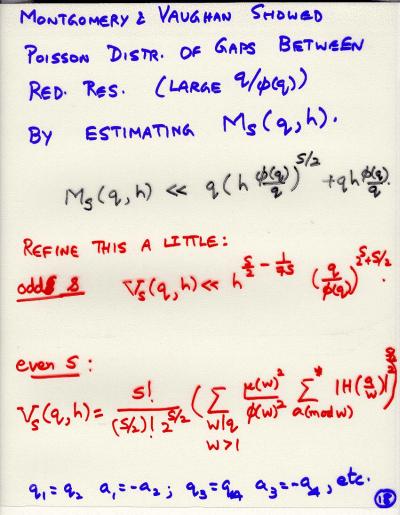 MONTGOMERY & VAUGHAN SHOWED
POISSON DISTR. OF GAPS BETWEEN
RED. RES. (LARGE q/φ(q))
BY ESTIMATING M_s(q,h).
M_s(q,h) ≪ q(h φ(q)/q)^{s/2} + qh φ(q)/q.
REFINE THIS A LITTLE:
odd s V_s(q,h) ≪ h^{s/2 - 1/7s} (q/φ(q))^{2^s+s/2}.
even s:
V_s(q,h) = s!/((s/2)! 2^{s/2}) (∑_{w|q w>1} μ(w)²/φ(w)² ∑*_{a(mod w)} |H(a/w)|²)^{s/2}
q₁=q₂ a₁=-a₂; q₃=q₄ a₃=-a₄, etc.